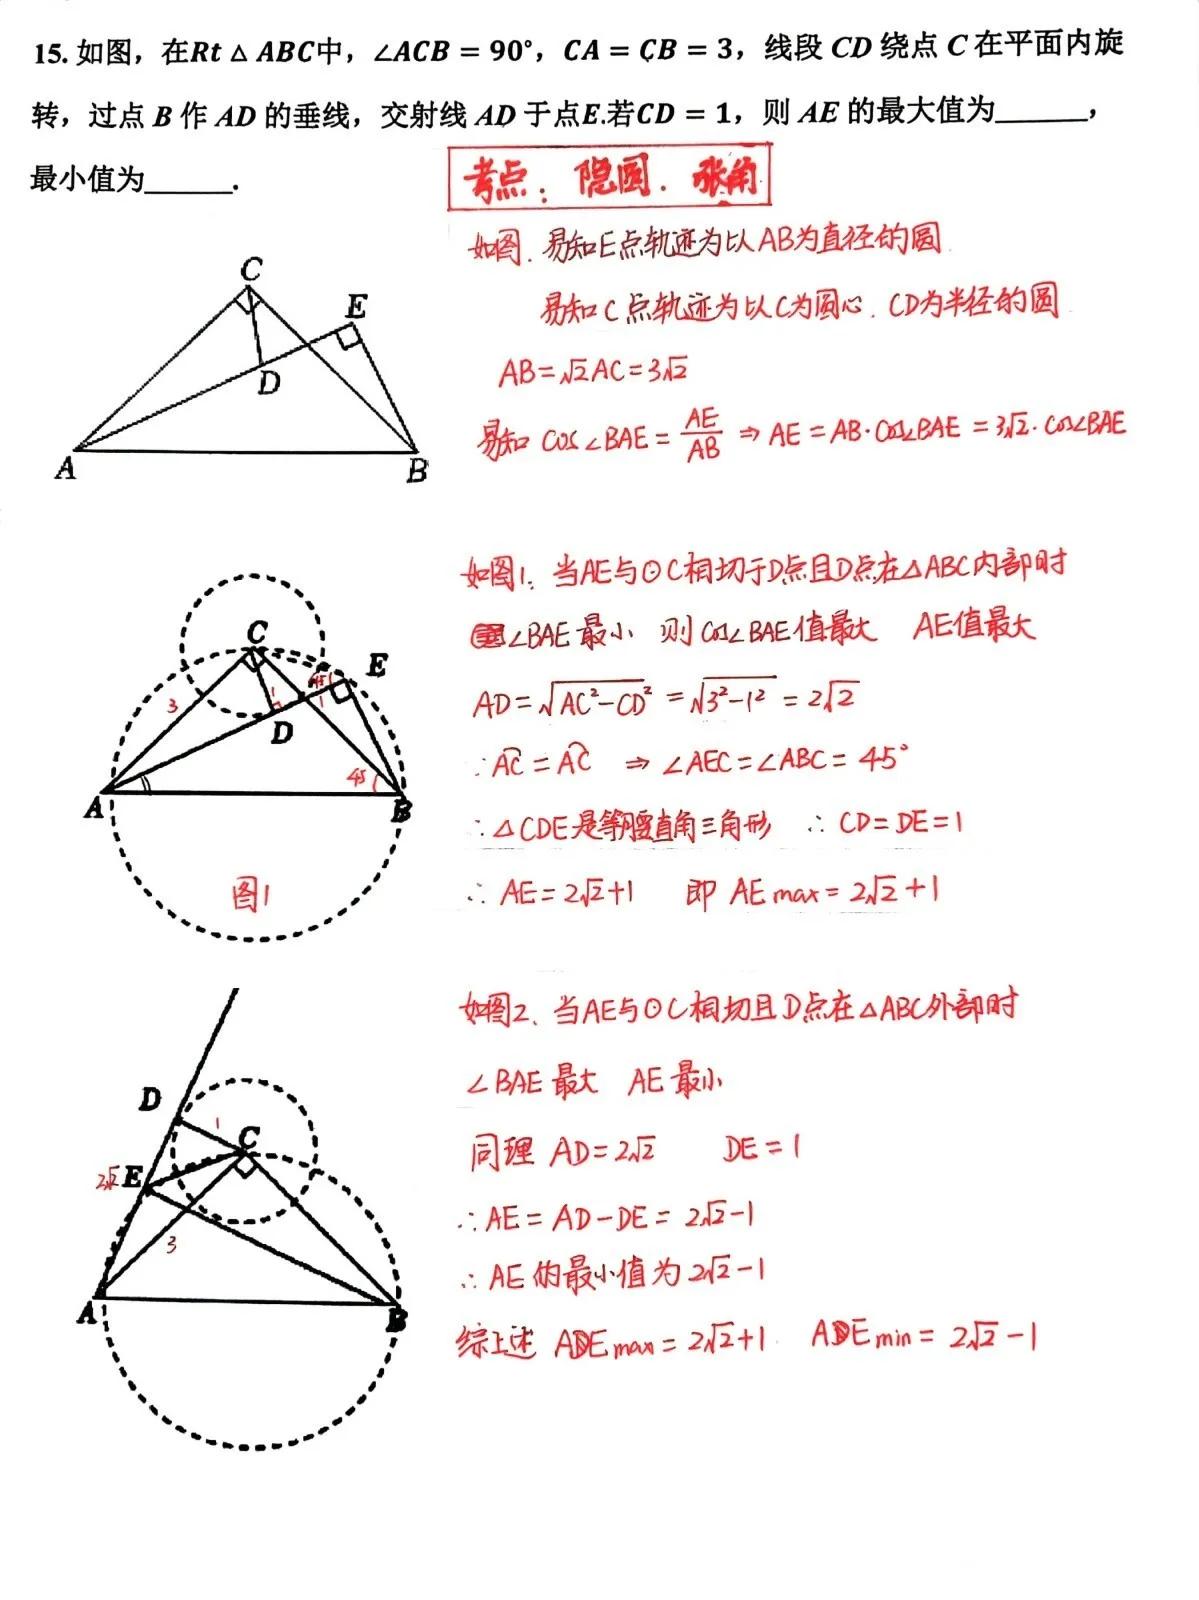 15. 如图，在Rt△ABC中，∠ACB = 90°，CA = CB = 3，线段 CD 绕点 C 在平面内旋
转，过点 B 作 AD 的垂线，交射线 AD 于点E.若CD = 1，则 AE 的最大值为______，
最小值为______.
考点：隐圆．张角
如图．易知E点轨迹为以AB为直径的圆
易知C点轨迹为以C为圆心．CD为半径的圆
C
E
D
A
B
AB=√2AC=3√2
易知 cos∠BAE = AE/AB ⇒ AE = AB·cos∠BAE = 3√2·cos∠BAE
如图1．当AE与⊙C相切于D点且D点在△ABC内部时
∠BAE最小 则cos∠BAE值最大 AE值最大
AD=√AC²-CD² =√3²-1² = 2√2
∵AC=AC ⇒ ∠AEC=∠ABC=45°
∴△CDE是等腰直角三角形 ∴CD=DE=1
∴AE=2√2+1 即 AEmax=2√2+1
C
E
3
1
45
1
D
45
A
B
图1
如图2、当AE与⊙C相切且D点在△ABC外部时
∠BAE最大 AE最小
同理 AD=2√2 DE=1
∴AE=AD-DE=2√2-1
∴AE的最小值为2√2-1
综上述 AEmax=2√2+1 AEmin=2√2-1
D
1
C
2√2
E
3
A
B